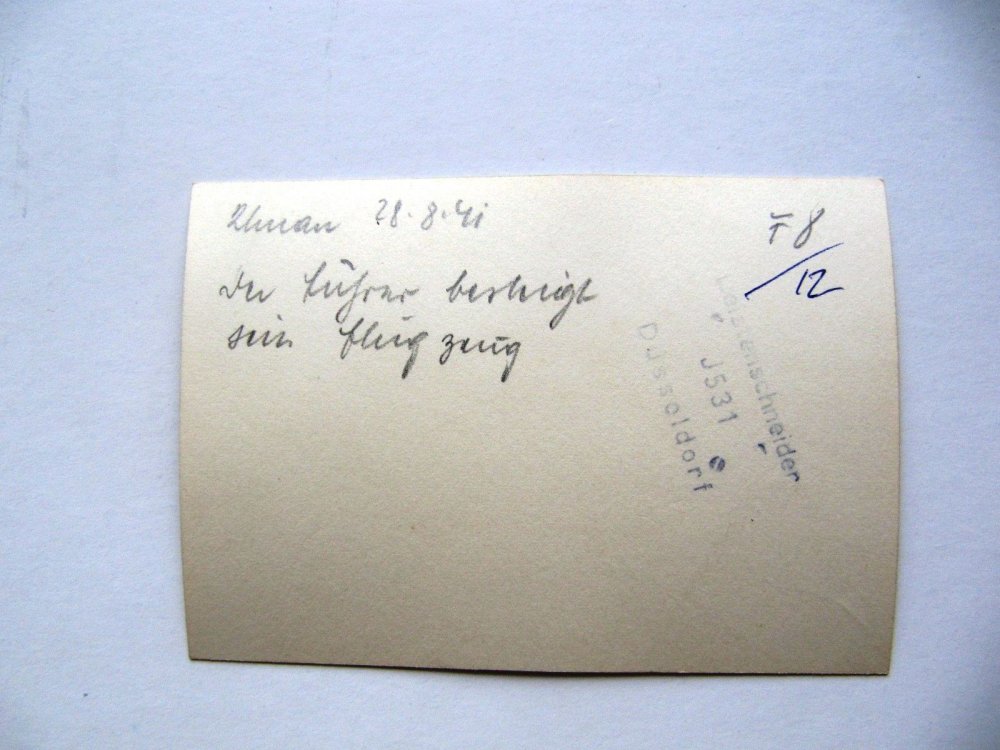 Uman 28.8.41
Der Führer besteigt
sein Flugzeug
F 8
/12
Leistenschneider
J531
Düsseldorf